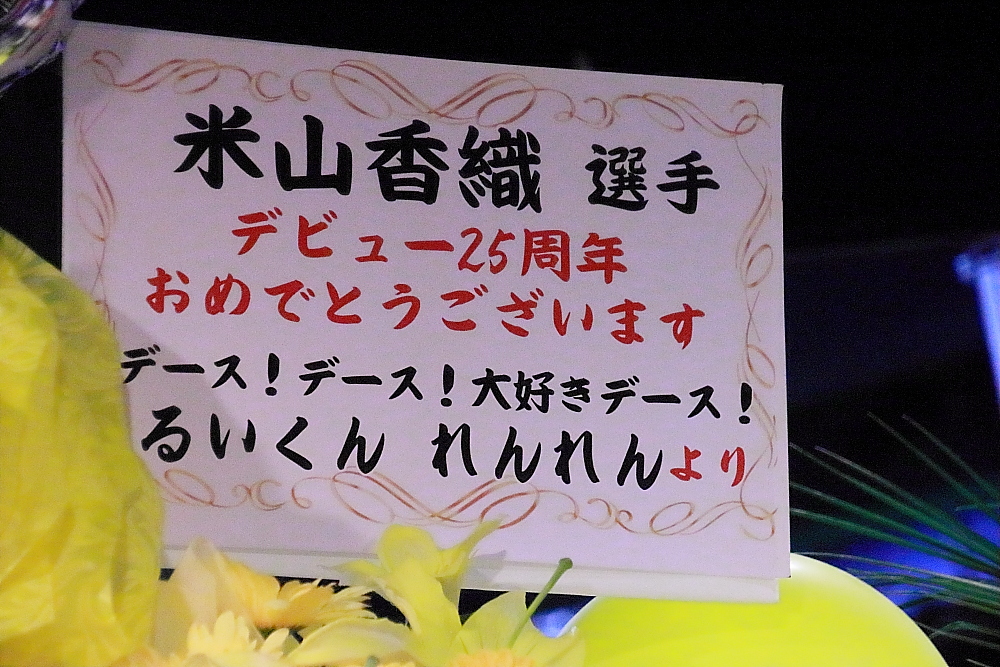 米山香織 選手
デビュー25周年
おめでとうございます
デース!デース!大好きデース!
るいくん れんれんより